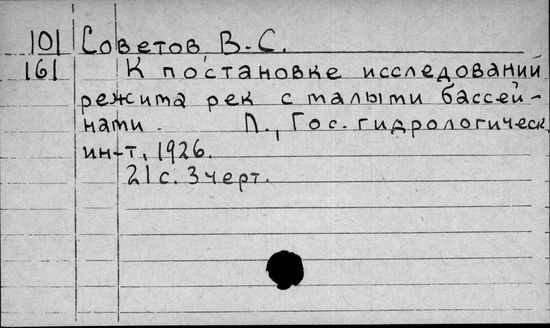 101 Советов, В.С.
161 К постановке исследований
режима рек с малыми бассей-
нами. Л., Гос. гидрологическ.
ин-т, 1926.
21с. 3 черт.